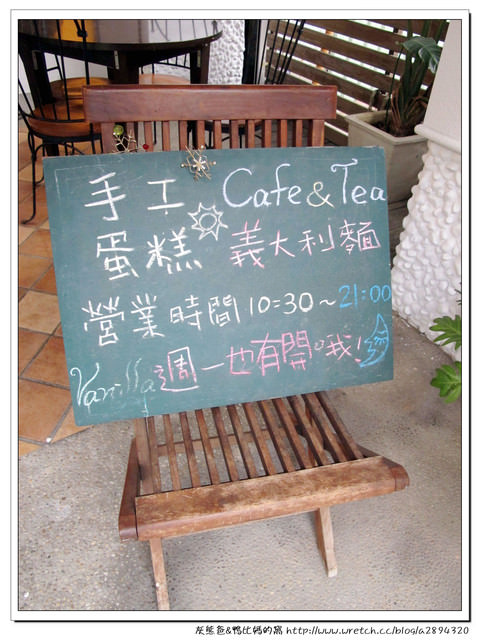 手工 Cafe & Tea
蛋糕 義大利麵
營業時間 10:30~21:00
Vanilla 週一也有開哦!
灰熊爸&鴨比媽的窩 http://www.wretch.cc/blog/a2894320